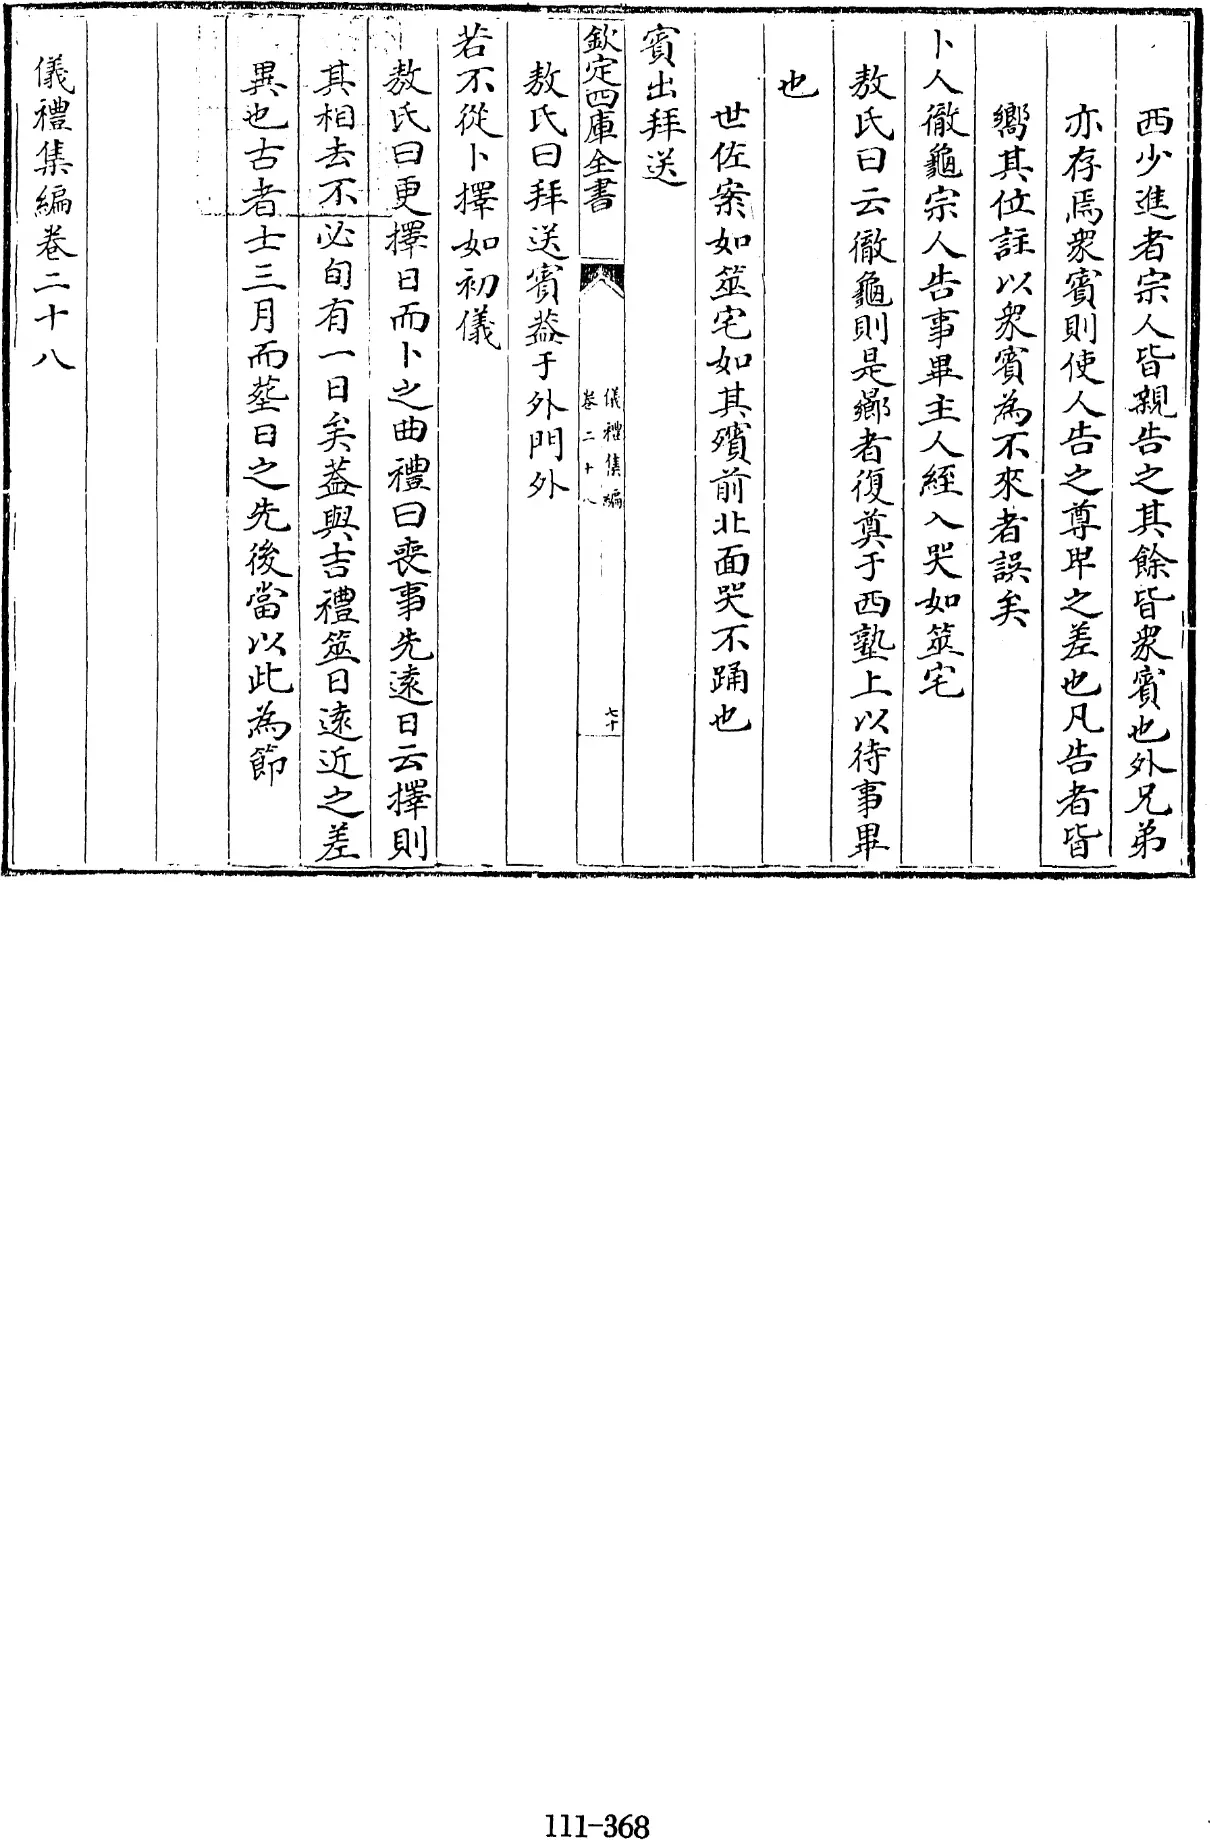 西少進者宗人皆親告之其餘皆衆賓也外兄弟
亦存焉衆賓則使人告之尊卑之差也凡告者皆
鄉其位註以衆賓為不來者誤矣
卜人徹龜宗人告事畢主人絰入哭如筮宅
敖氏曰云徹龜則是鄉者復奠于西塾上以待事畢
也
世佐案如筮宅如其殯前北面哭不踊也
賓出拜送
欽定四庫全書
儀禮集編
卷二十八
七十
敖氏曰拜送賓葢于外門外
若不從卜擇如初儀
敖氏曰更擇日而卜之曲禮曰喪事先遠日云擇則
其相去不必旬有一日矣葢與吉禮筮日遠近之差
異也古者士三月而塟日之先後當以此為節
儀禮集編卷二十八
111-368